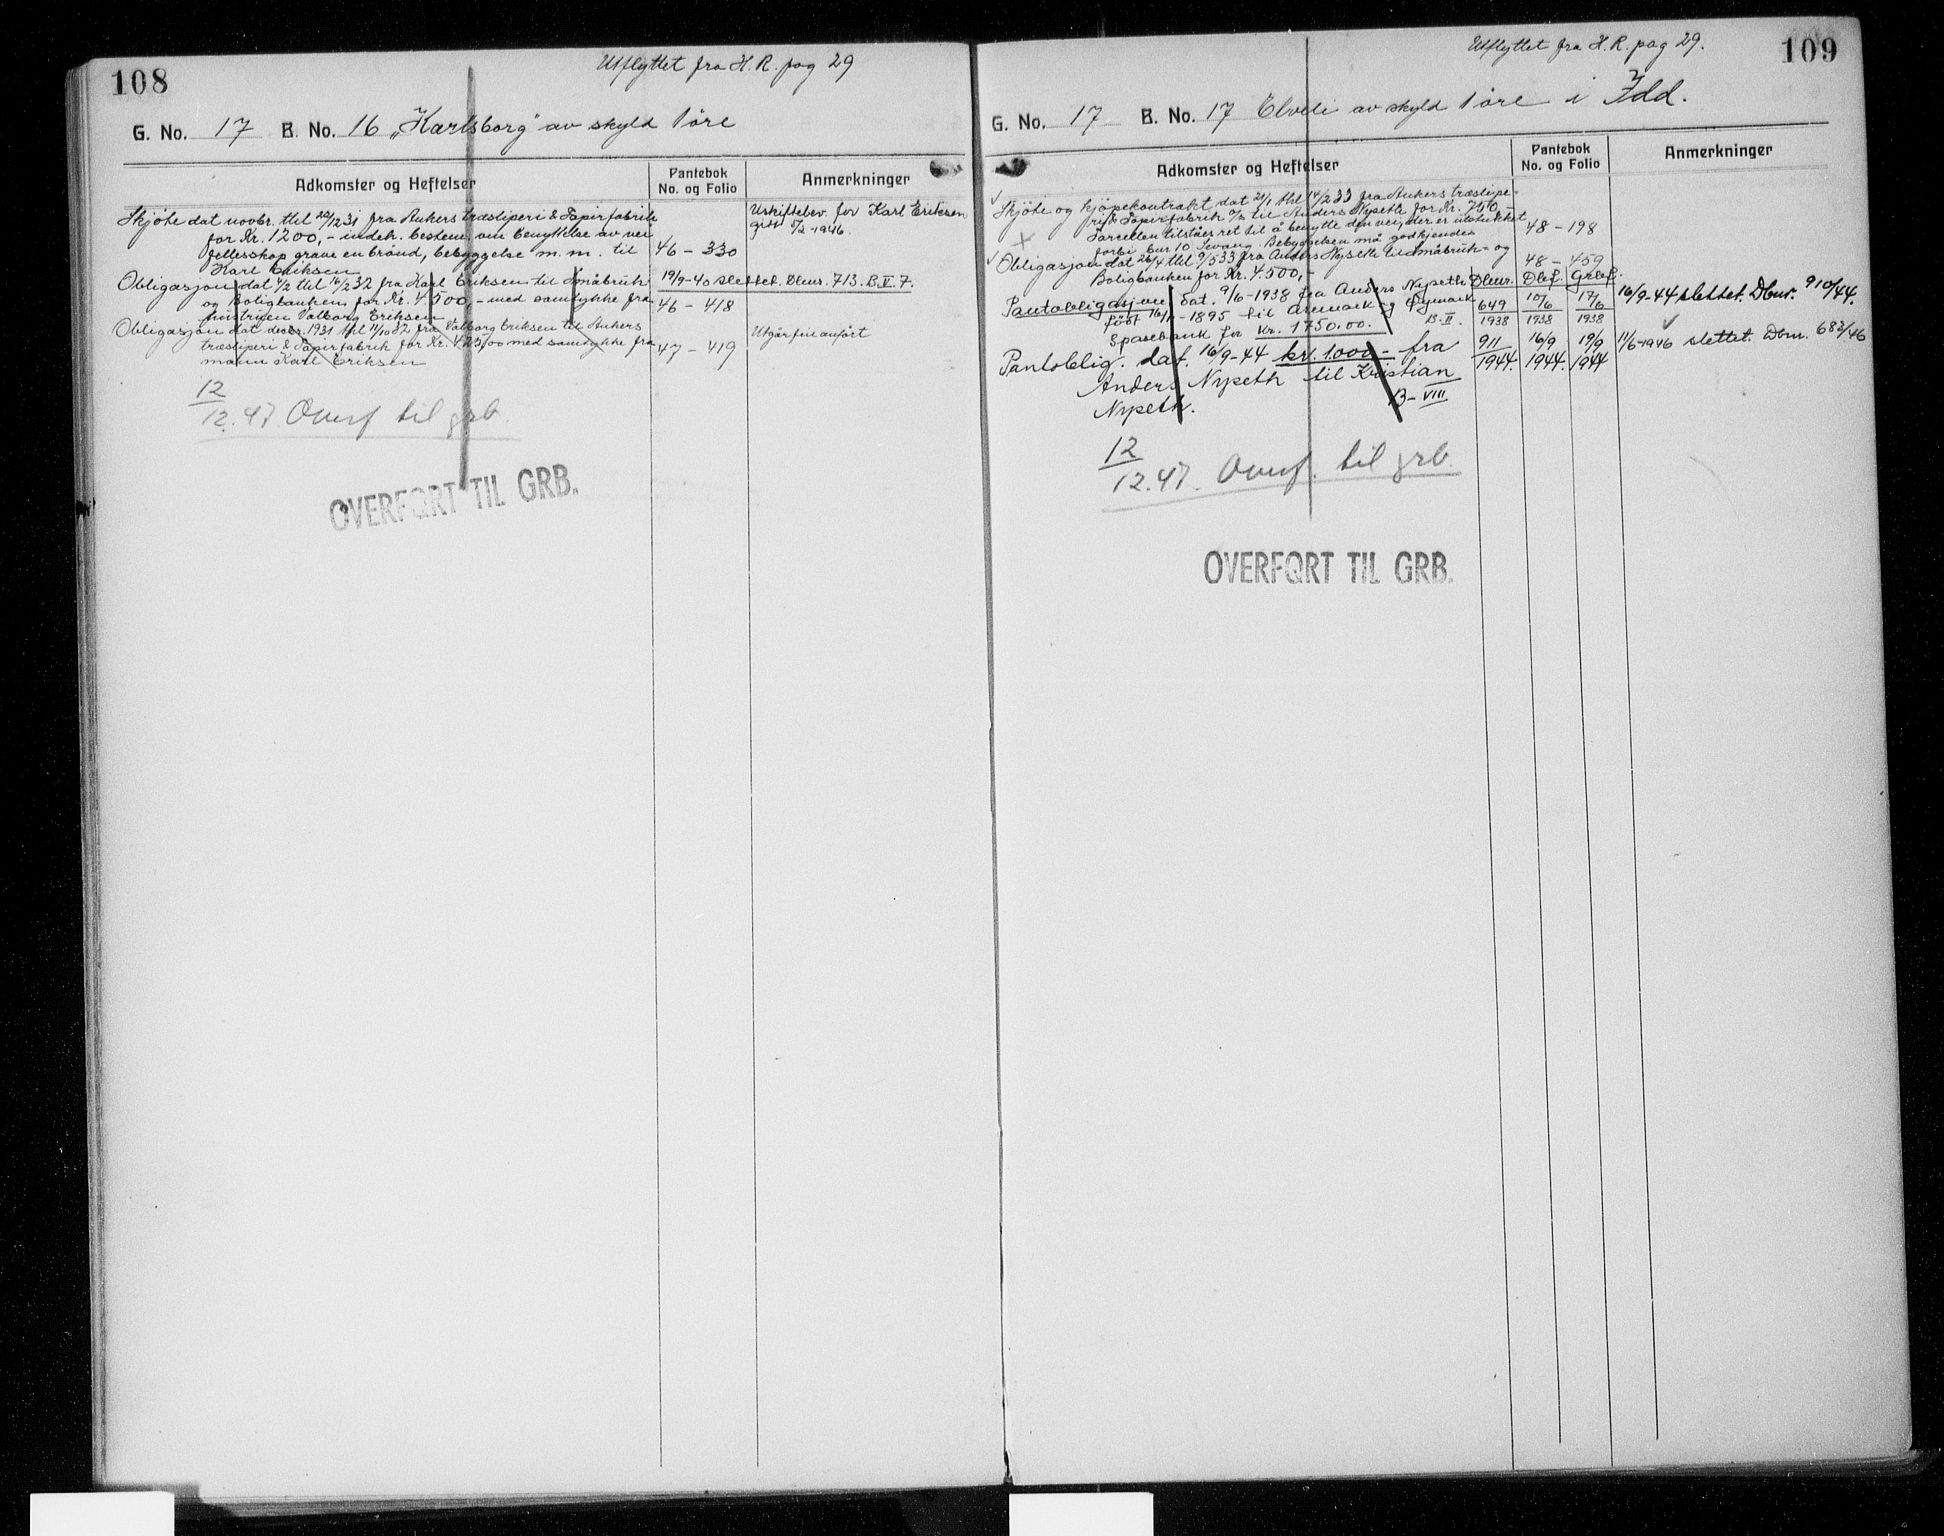 108
Utflyttet fra H. R. pag 29
G. No. 17 B. No. 16 „Karlsborg" av skyld 1 øre
Adkomster og Heftelser
Pantebok
No. og Folio
Anmerkninger
Skjöte dat novbr. thl 22/12 31 fra Ankers træsliperi & Papirfabrik
for Kr. 1200,- indeh. bestem. om benyttelse av vei
fellesskap grave en brönd, bebyggelse m. m. til
Karl Eriksen
46 – 330
Uskiftebev. for Karl Eriksen
1946.
Obligasjon dat 4/2 thl 16/2 32 fra Karl Eriksen til Småbruk
og Boligbanken for Kr. 4500,- med samtykke fra
hustruen Valborg Eriksen
19/9-40 slettet. Dbnr. 713. B. V. 7.
46 – 418
Obligasjon dat decbr. 1931 thl 11/10 32 fra Valborg Eriksen til Ankers
træsliperi & Papirfabrik for Kr. 425,00 med samtykke fra
mann Karl Eriksen
47 – 419
Utgår feilanfört
12
12.47 Overf til grb.
OVERFØRT TIL GRB.
109
Utflyttet fra H. R. pag 29.
G. No. 17 B. No. 17 Elveli av skyld 1 øre i Idd.
Adkomster og Heftelser
Pantebok
No. og Folio
Anmerkninger
Skjöte og kjöpekontrakt dat 21/1 thl 14/2 33 fra Ankers træslipe-
ri & Papirfabrik A/S til Anders Nypeth for Kr. 750,-
Parcellen tilståes ret til å benytte den vei, der er utstukket
forbi bnr 10 Bebyggelsen må godkjendes
48 – 198
Obligasjon dat 26/4 thl 9/5 33 fra Anders Nypeth til Småbruk- og
Boligbanken for Kr. 4.500,-
48 – 459
Pantobligasjon dat. 9/6-1938 fra Anders Nypeth
født 1895 til Aremark og Øymark
Sparebank for kr. 1750.00. B. II.
Dbnr. Dbf. Grbf.
649 10/6 17/6
1938 1938 1938
16/9-44 slettet. Dbnr. 910/44.
Pantoblig. dat. 16/9-44 kr. 1.000,- fra
Anders Nypeth til Kristian
Nypeth. B-VIII
911 16/9 19/9
1944. 1944. 1944
11/6-1946 slettet. Dbnr. 683/46
12
12.47. Overf. til grb
OVERFØRT TIL GRB.